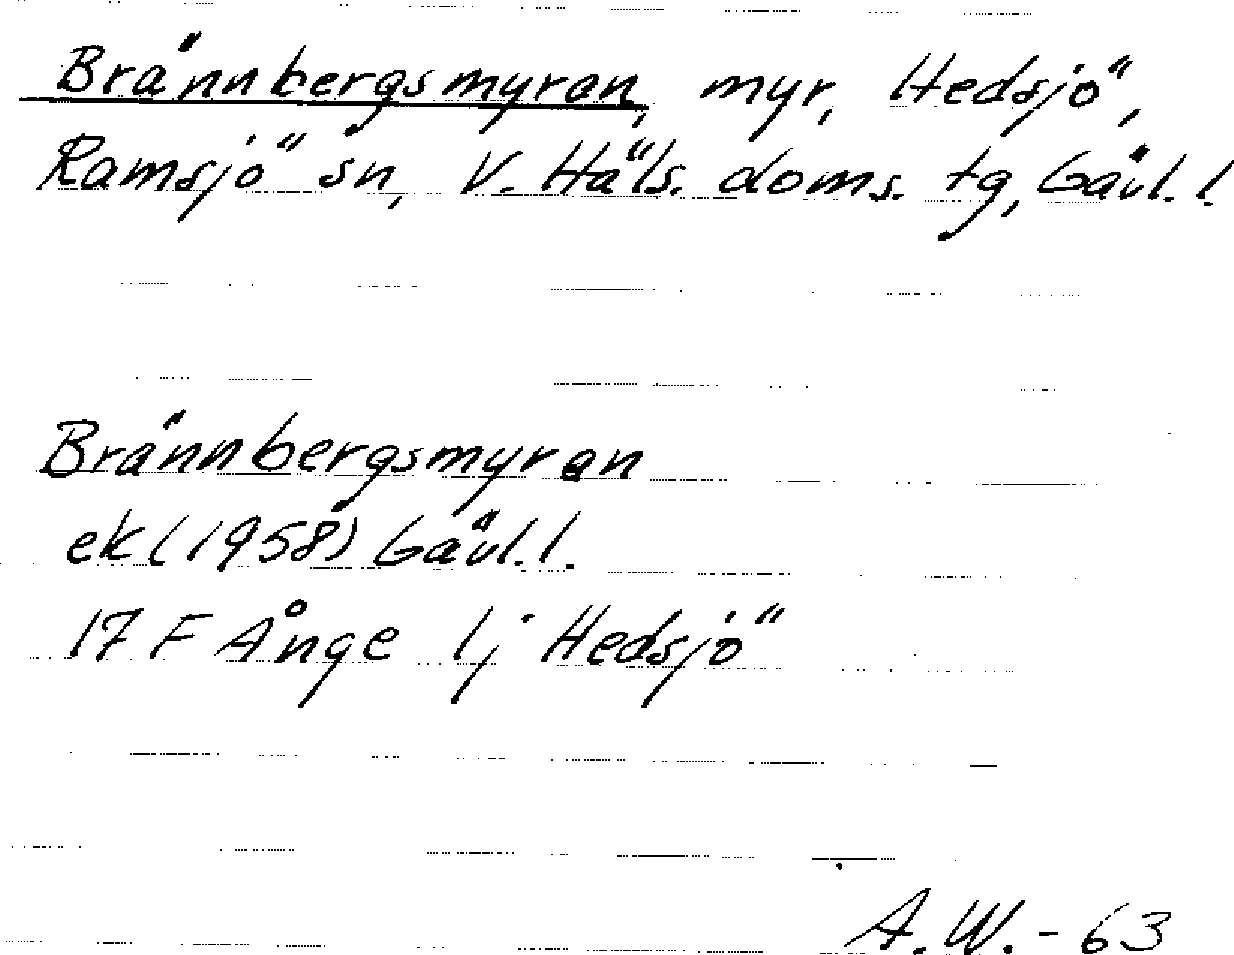 Brännbergsmyran, myr, Hedsjö,
Ramsjö sn, V. Häls. doms. tg, Gävl. l.
Brännbergsmyran
ek (1958) Gävl. l.
17 F Ånge 1j Hedsjö
A.W.-63